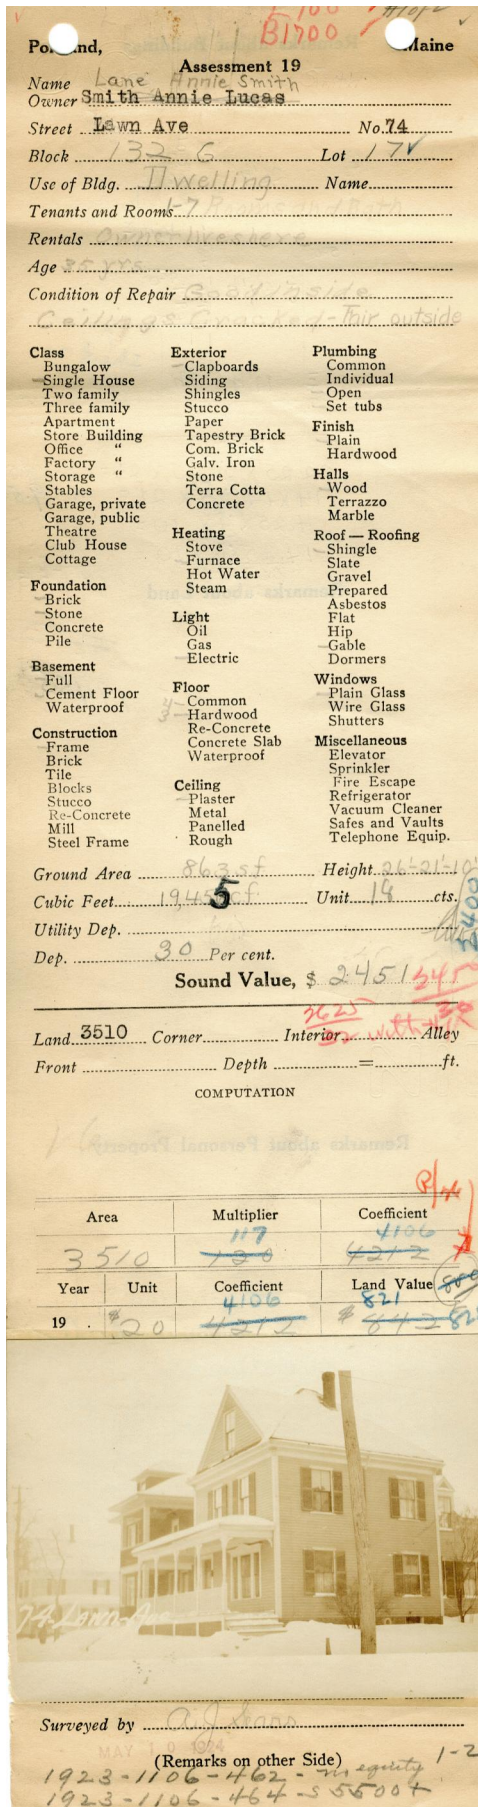 B1700
Portland, Maine
Assessment 19
Name Lane Annie Smith
Owner Smith Annie Lucas
Street Lawn Ave No. 74
Block 132-G Lot 17 ✓
Use of Bldg. Dwelling Name
Tenants and Rooms 1-7 Rooms and Bath
Rentals Owner lives here
Age 35 yrs
Condition of Repair Good inside
Ceilings Cracked - Fair outside
Class
Bungalow
Single House
Two family
Three family
Apartment
Store Building
Office "
Factory "
Storage "
Stables
Garage, private
Garage, public
Theatre
Club House
Cottage
Foundation
Brick
Stone
Concrete
Pile
Basement
Full
Cement Floor
Waterproof
Construction
Frame
Brick
Tile
Blocks
Stucco
Re-Concrete
Mill
Steel Frame
Exterior
Clapboards
Siding
Shingles
Stucco
Paper
Tapestry Brick
Com. Brick
Galv. Iron
Stone
Terra Cotta
Concrete
Heating
Stove
Furnace
Hot Water
Steam
Light
Oil
Gas
Electric
Floor
4 Common
3 Hardwood
Re-Concrete
Concrete Slab
Waterproof
Ceiling
Plaster
Metal
Panelled
Rough
Plumbing
Common
Individual
Open
Set tubs
Finish
Plain
Hardwood
Halls
Wood
Terrazzo
Marble
Roof — Roofing
Shingle
Slate
Gravel
Prepared
Asbestos
Flat
Hip
Gable
Dormers
Windows
Plain Glass
Wire Glass
Shutters
Miscellaneous
Elevator
Sprinkler
Fire Escape
Refrigerator
Vacuum Cleaner
Safes and Vaults
Telephone Equip.
Ground Area 863 sf Height 26'-21'-10'
Cubic Feet 19,455 cf Unit 18 cts.
Utility Dep. 2400
Dep. 30 Per cent.
Sound Value, $ 2451 2450
2625
Land 3510 Corner Interior Alley
Front Depth = ft.
COMPUTATION
Area Multiplier Coefficient
117 4106
3510 120 4212
Year Unit Coefficient Land Value
4106 821
19 . $20 4212 $ 842 821
74 Lawn Ave
Surveyed by A J Sears
MAY 19 1924
(Remarks on other Side) 1-2
1923-1106-462 - no equity
1923-1106-464 - $5500+